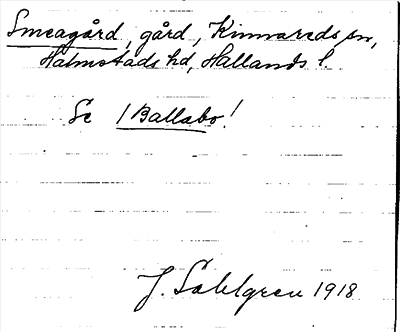 Smeagård, gård, Kinnareds sn,
Halmstads hd, Hallands l.
Se 1 Ballabo!
J. Sahlgren 1918